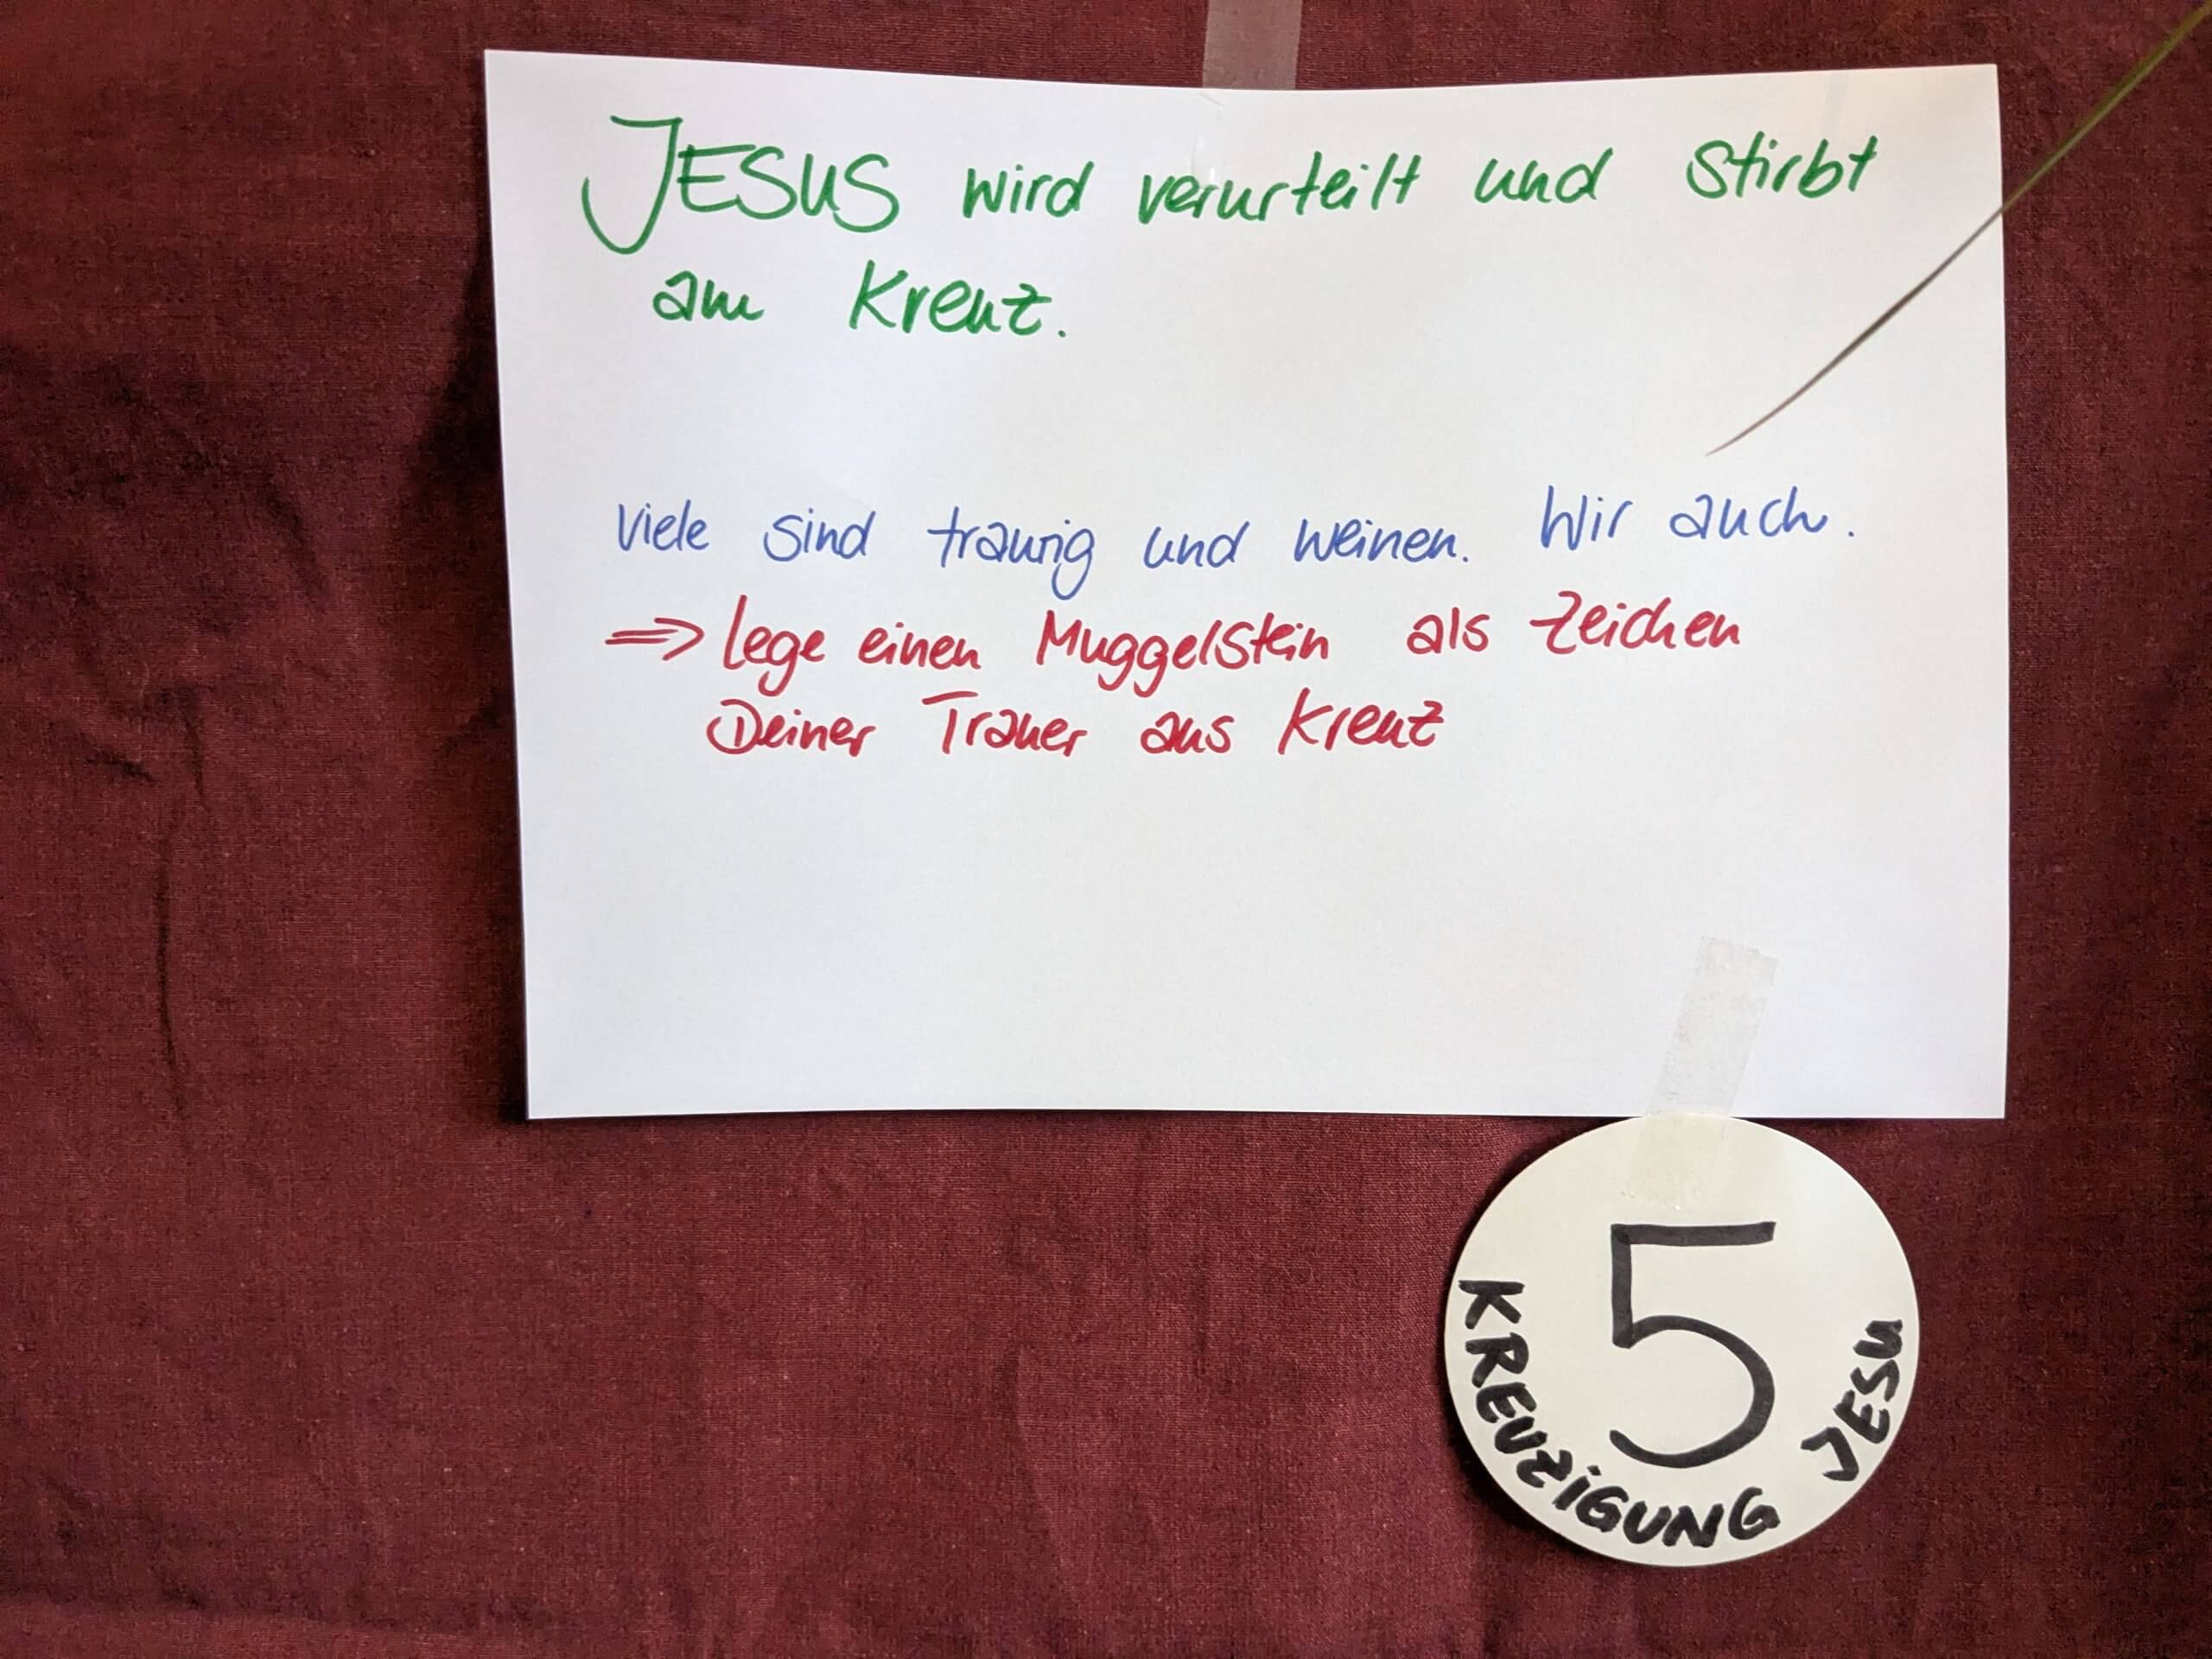 JESUS wird verurteilt und stirbt
am Kreuz.
Viele sind traurig und weinen. Wir auch.
=> Lege einen Muggelstein als Zeichen
Deiner Trauer ans Kreuz
5
KREUZiGUNG JESU